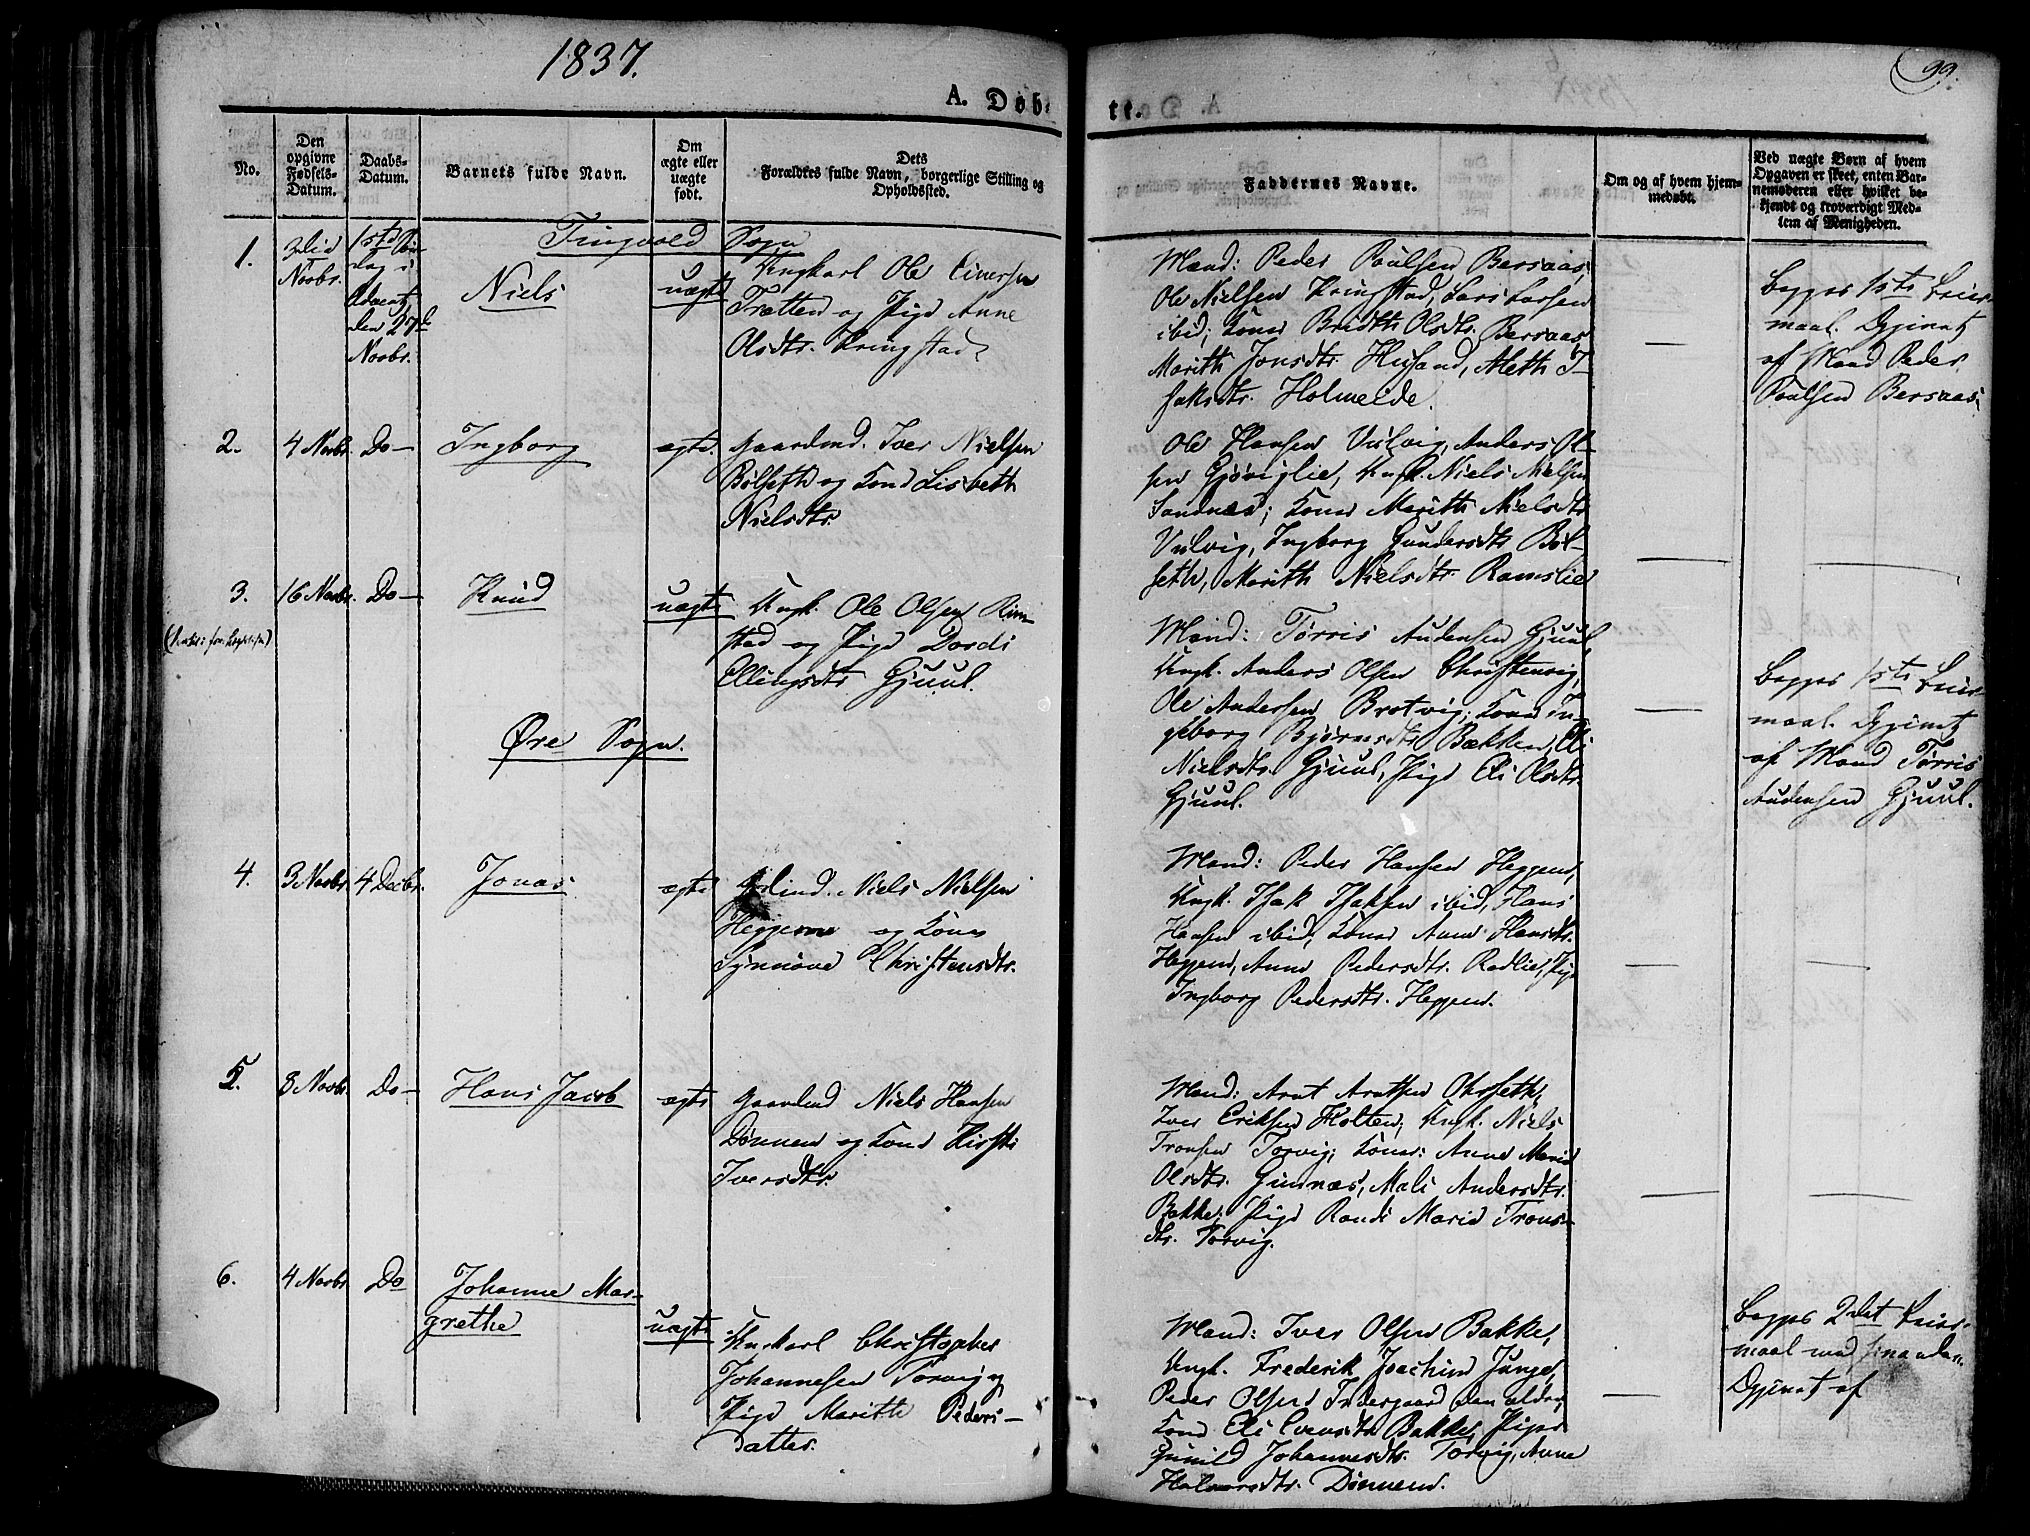 1837.
99.
A. Døbte.
No.
Den opgivne Fødsels-Datum.
Daabs-Datum.
Barnets fulde Navn.
Om ægte eller uægte født.
Dets Forældres fulde Navn, borgerlige Stilling og Opholdssted.
Faddernes Navne.
Om og af hvem hjemmedøbt.
Ved uægte Børn af hvem Opgaven er skeet, enten Barnemoderen eller hvilket bekjendt og troværdigt Medlem af Menigheden.
Tingvold Sogn
1.
Novbr.
Advent,
den 27de
Novbr.
Niels
uægte
Ungkarl Ole Einersen
Trætten og Pige Anne
Olsdtr. Kringstad
Mænd: Peder Poulsen Bersaas,
Ole Nielsen Kringstad, Lars Larsen
ibid; Koner Bridth Olsdtr. Bersaas
Marith Jonsdtr. Husand, Meth I-
saksdtr. Holmelde.
Begges 1ste Leier-
maal. Opgivet
af Mand Peder
Poulsen Bersaas.
2.
4 Novbr.
Do—
Ingborg
ægte.
Gaardmd. Iver Nielsen
Bölseth og Kone Lisbeth
Nielsdtr.
Ole Hansen Vulvig, Anders Ol-
sen Gjøviglie, Ungk. Niels Nielsen
Sandnes; Koner Marith Nielsdtr
Vulvig, Ingborg Gundersdtr Böl-
seth, Marith Nielsdtr. Ramslie
3.
16 Novbr.
Do—
Knud
uægte
Ungk. Ole Olsen Rim-
stad og Pige Dordi
Ellingsdtr Gjuul.
Mænd: Tørris Audensen Gjuul,
Ungk. Anders Olsen Christenvig,
Ole Andersen Brotvig; Koner In-
geborg Bjørnsdtr Bækken, Eli
Nielsdtr. Gjuul, Pige Eli Olsdtr.
Gjuul.
Begges 1ste Leier-
maal. Opgivet
af Mand Tørris
Audensen Gjuul.
Øre Sogn.
4.
3 Novbr.
4 Decbr.
Jonas
ægte
Niels Nielsen
Heggem og Kone
Synnøve Christensdtr.
Mænd: Peder Hansen Heggem,
Ungk. Isak Isaksen ibid, Hans
Hansen ibid; Koner Anne Hansdtr.
Heggem, Anne Pedersdtr. Rødlie, Pige
Ingborg Pedersdtr. Heggem.
5.
8 Novbr.
Do—
Hans Jacob
ægte
Gaardmd Niels Hansen
Dönnem og Kone Kirsti
Iversdtr.
Mænd: Arnt Arntsen Ohrseth,
Iver Eriksen Holten; Ungk. Niels
Tronsen Torvig; Koner: Anne Marie
Olsdtr. Guunæs, Mali Andersdtr.
Bakke; Pige Randi Marie Trons-
dtr. Torvig.
6.
4 Novbr.
Do
Johanne Mar-
grethe
uægte
Ungkarl Christopher
Johannesen Torvig og
Pige Marith Peders-
datter.
Mænd: Iver Olsen Bakke,
Ungk. Frederik Joachim Junge,
Peder Olsen Indergaard den ældre,
Kone Eli Evensdtr Bakke, Piger
Gunild Johannesdtr. Torvig, Anne
Halvorsdtr. Dönnem.
Begges 2det Leier-
maal med hinanden.
Opgivet af